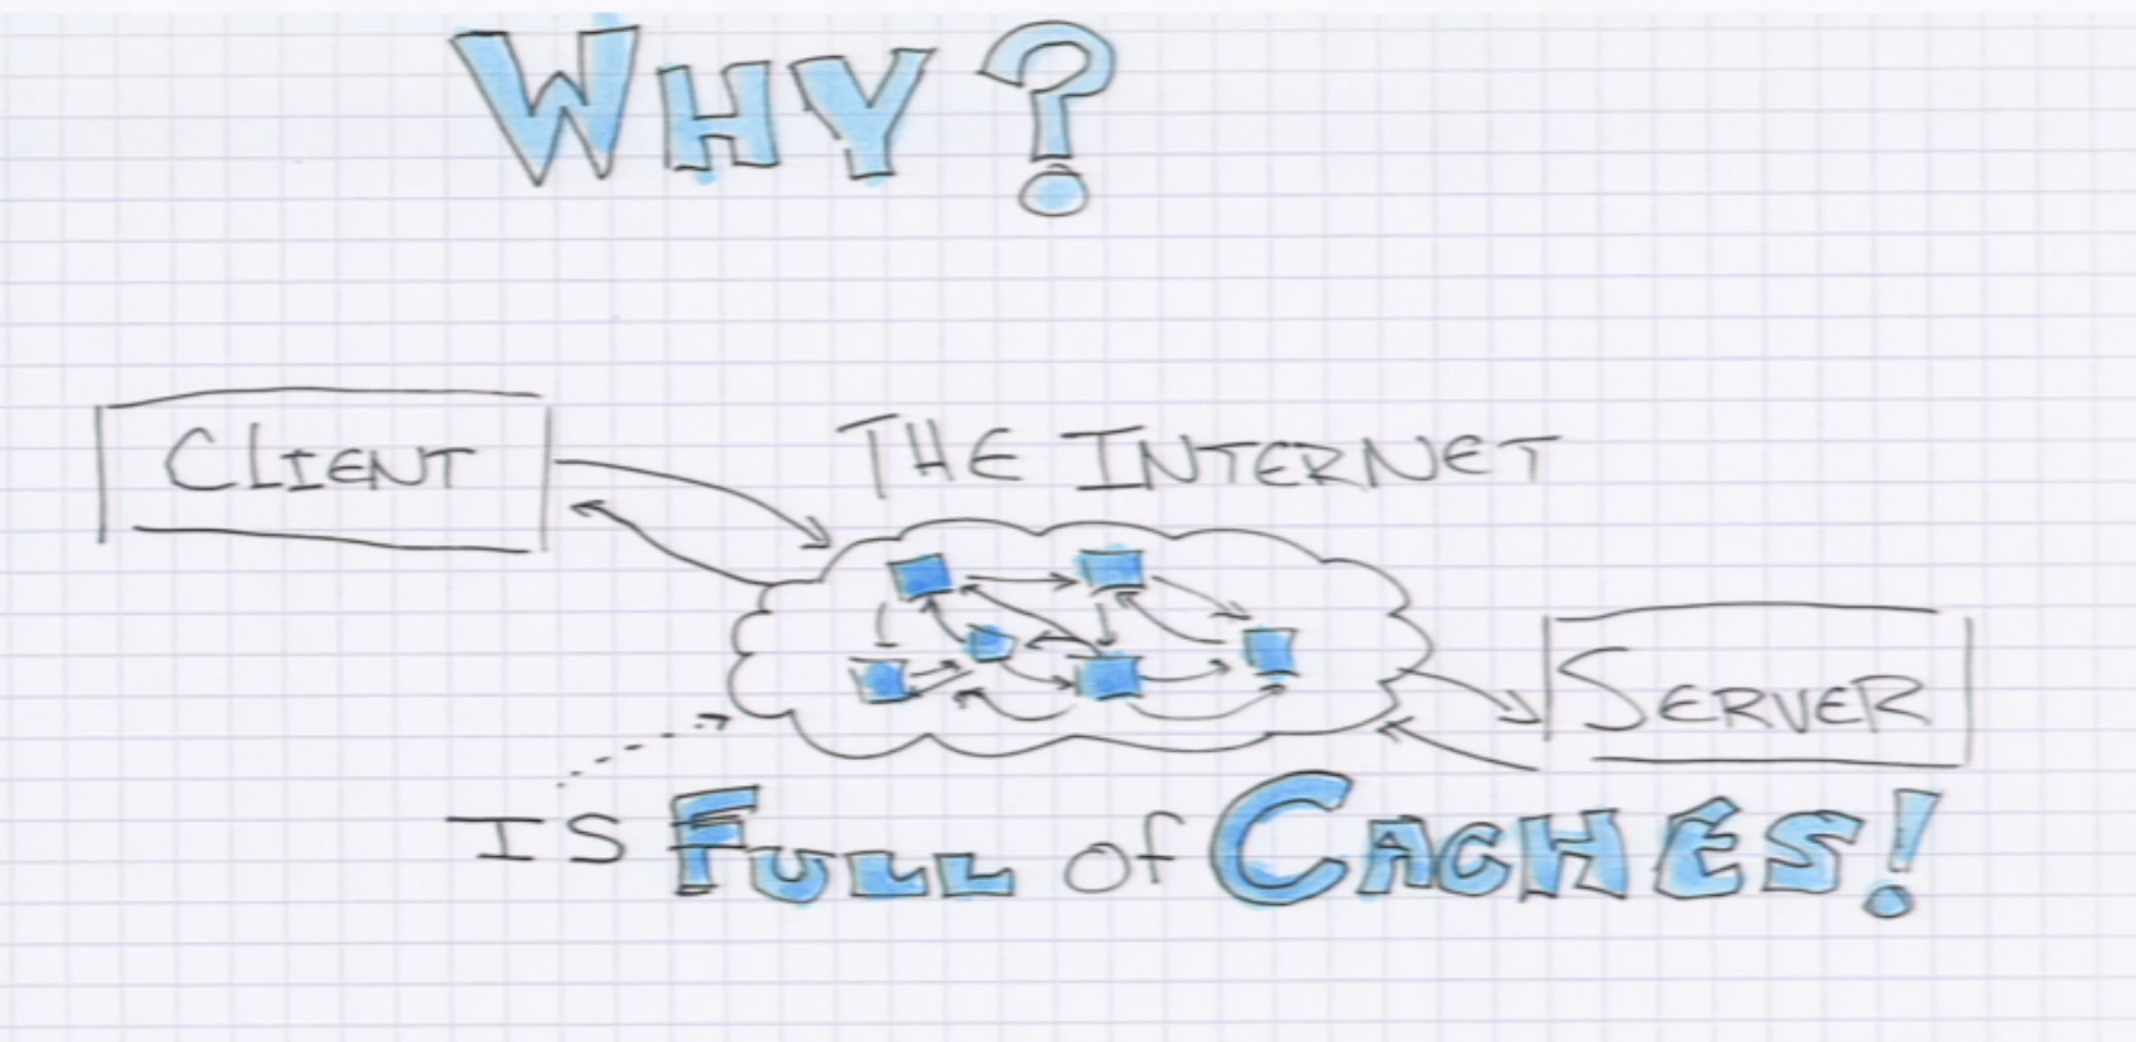 WHY?
CLIENT
THE INTERNET
SERVER
IS FULL of CACHES!